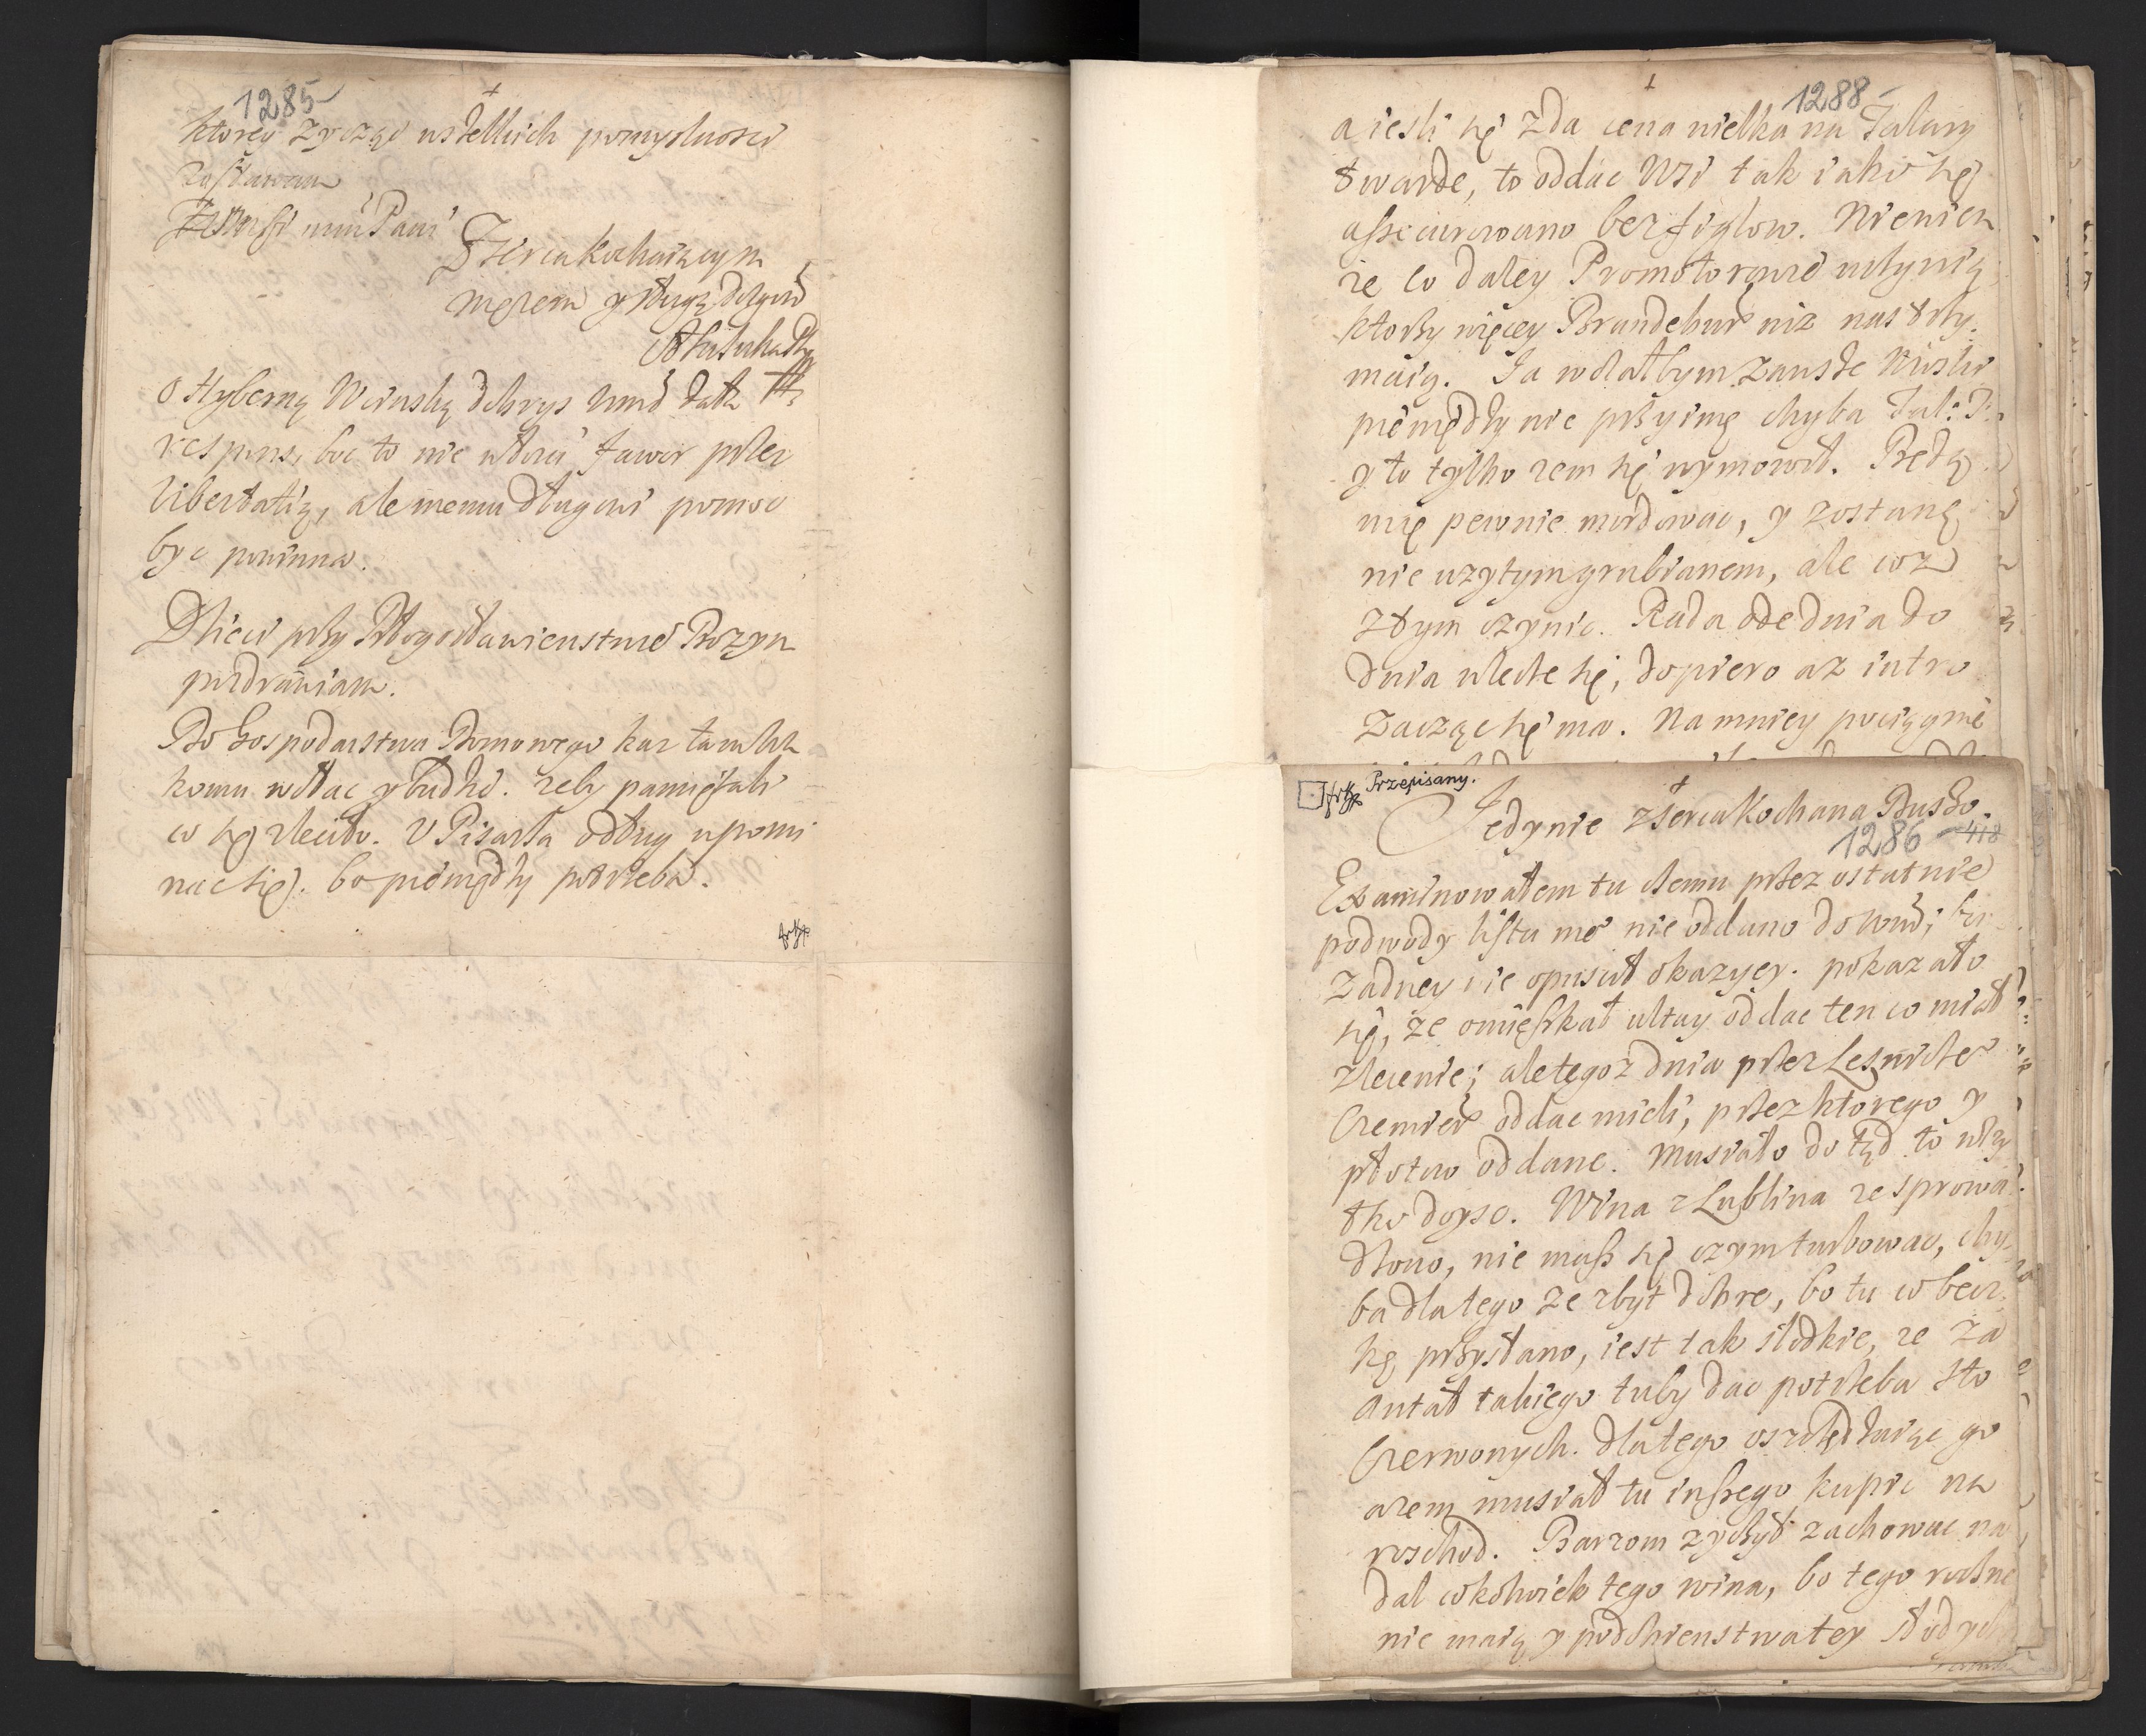 1285
ktorey zycząc wszelkich pomyslnosci
Zostawam
mći Pani
Z serca kochaiącym
męzem y sługą
O Hybernę dobrys dała
respons, boc to nie Jawor przez
libertatią, ale memu długowi pomoc
byc powinna.
Dzieci przy Błogosławienstwie Bozym
pozdrawiam.
Do Gospodarstwa Domowego kaz tamzlek
komu wdac y ludzi. zeby pamiętali
co się zleciło. U Pisarza o dług upomi
nac się. bo pieniędzy potrzeba.
1288
a iesli się zda cena wielka na Talary
twarde, to oddac Wsi tak iako się
assecurowano bez figlow. Niewiem
ze co daley Promotorowie uczynią
ktorzy więcey Brandebur niz nas trzy.
maią. Ja wolałbym zawsze Wioski
pieniędzy nie przyimę chyba Tal:
y to tylko zem się wymowił. Będą
mię pewnie mordowac, y zostanę
nie uzytym grubianem, ale coz
z tym czynic. Rada ode dnia do
dnia wlecze się, dopiero az iutro
zacząc się ma. Namniey pociągnie
Przepisany.
Jedynie z serca Kochana Duszo.
1286 418
Examinowałem tu czemu przez ostatnie
podwody listu me nie oddano do Wmci; bom
zadney nie opuscił okazyey. pokazało
się, ze omieszkał wczay oddac ten co miał
zlecenie; ale tegoz dnia przez Lesnicze
Czemier oddac mieli, przez ktorego y
płotno oddane. Musiało dotąd to wszy
tko doysc. Wina z Lublina ze sprowa
dzono, nie masz się czym turbowac, chy
ba dlatego ze zbyt dobre, bo tu co becz
kę przysłano, iest tak słodkie, ze za
antał takiego tuby dac potrzeba sto
Czerwonych. dlatego oszczędzaiąc go
azem musiał tu inszego kupic na
roschod. Barzom zyczył zachowac na
dal cokolwiek tego wina, bo tego rocznie
nie maią y podobienstwa tey słodyczy